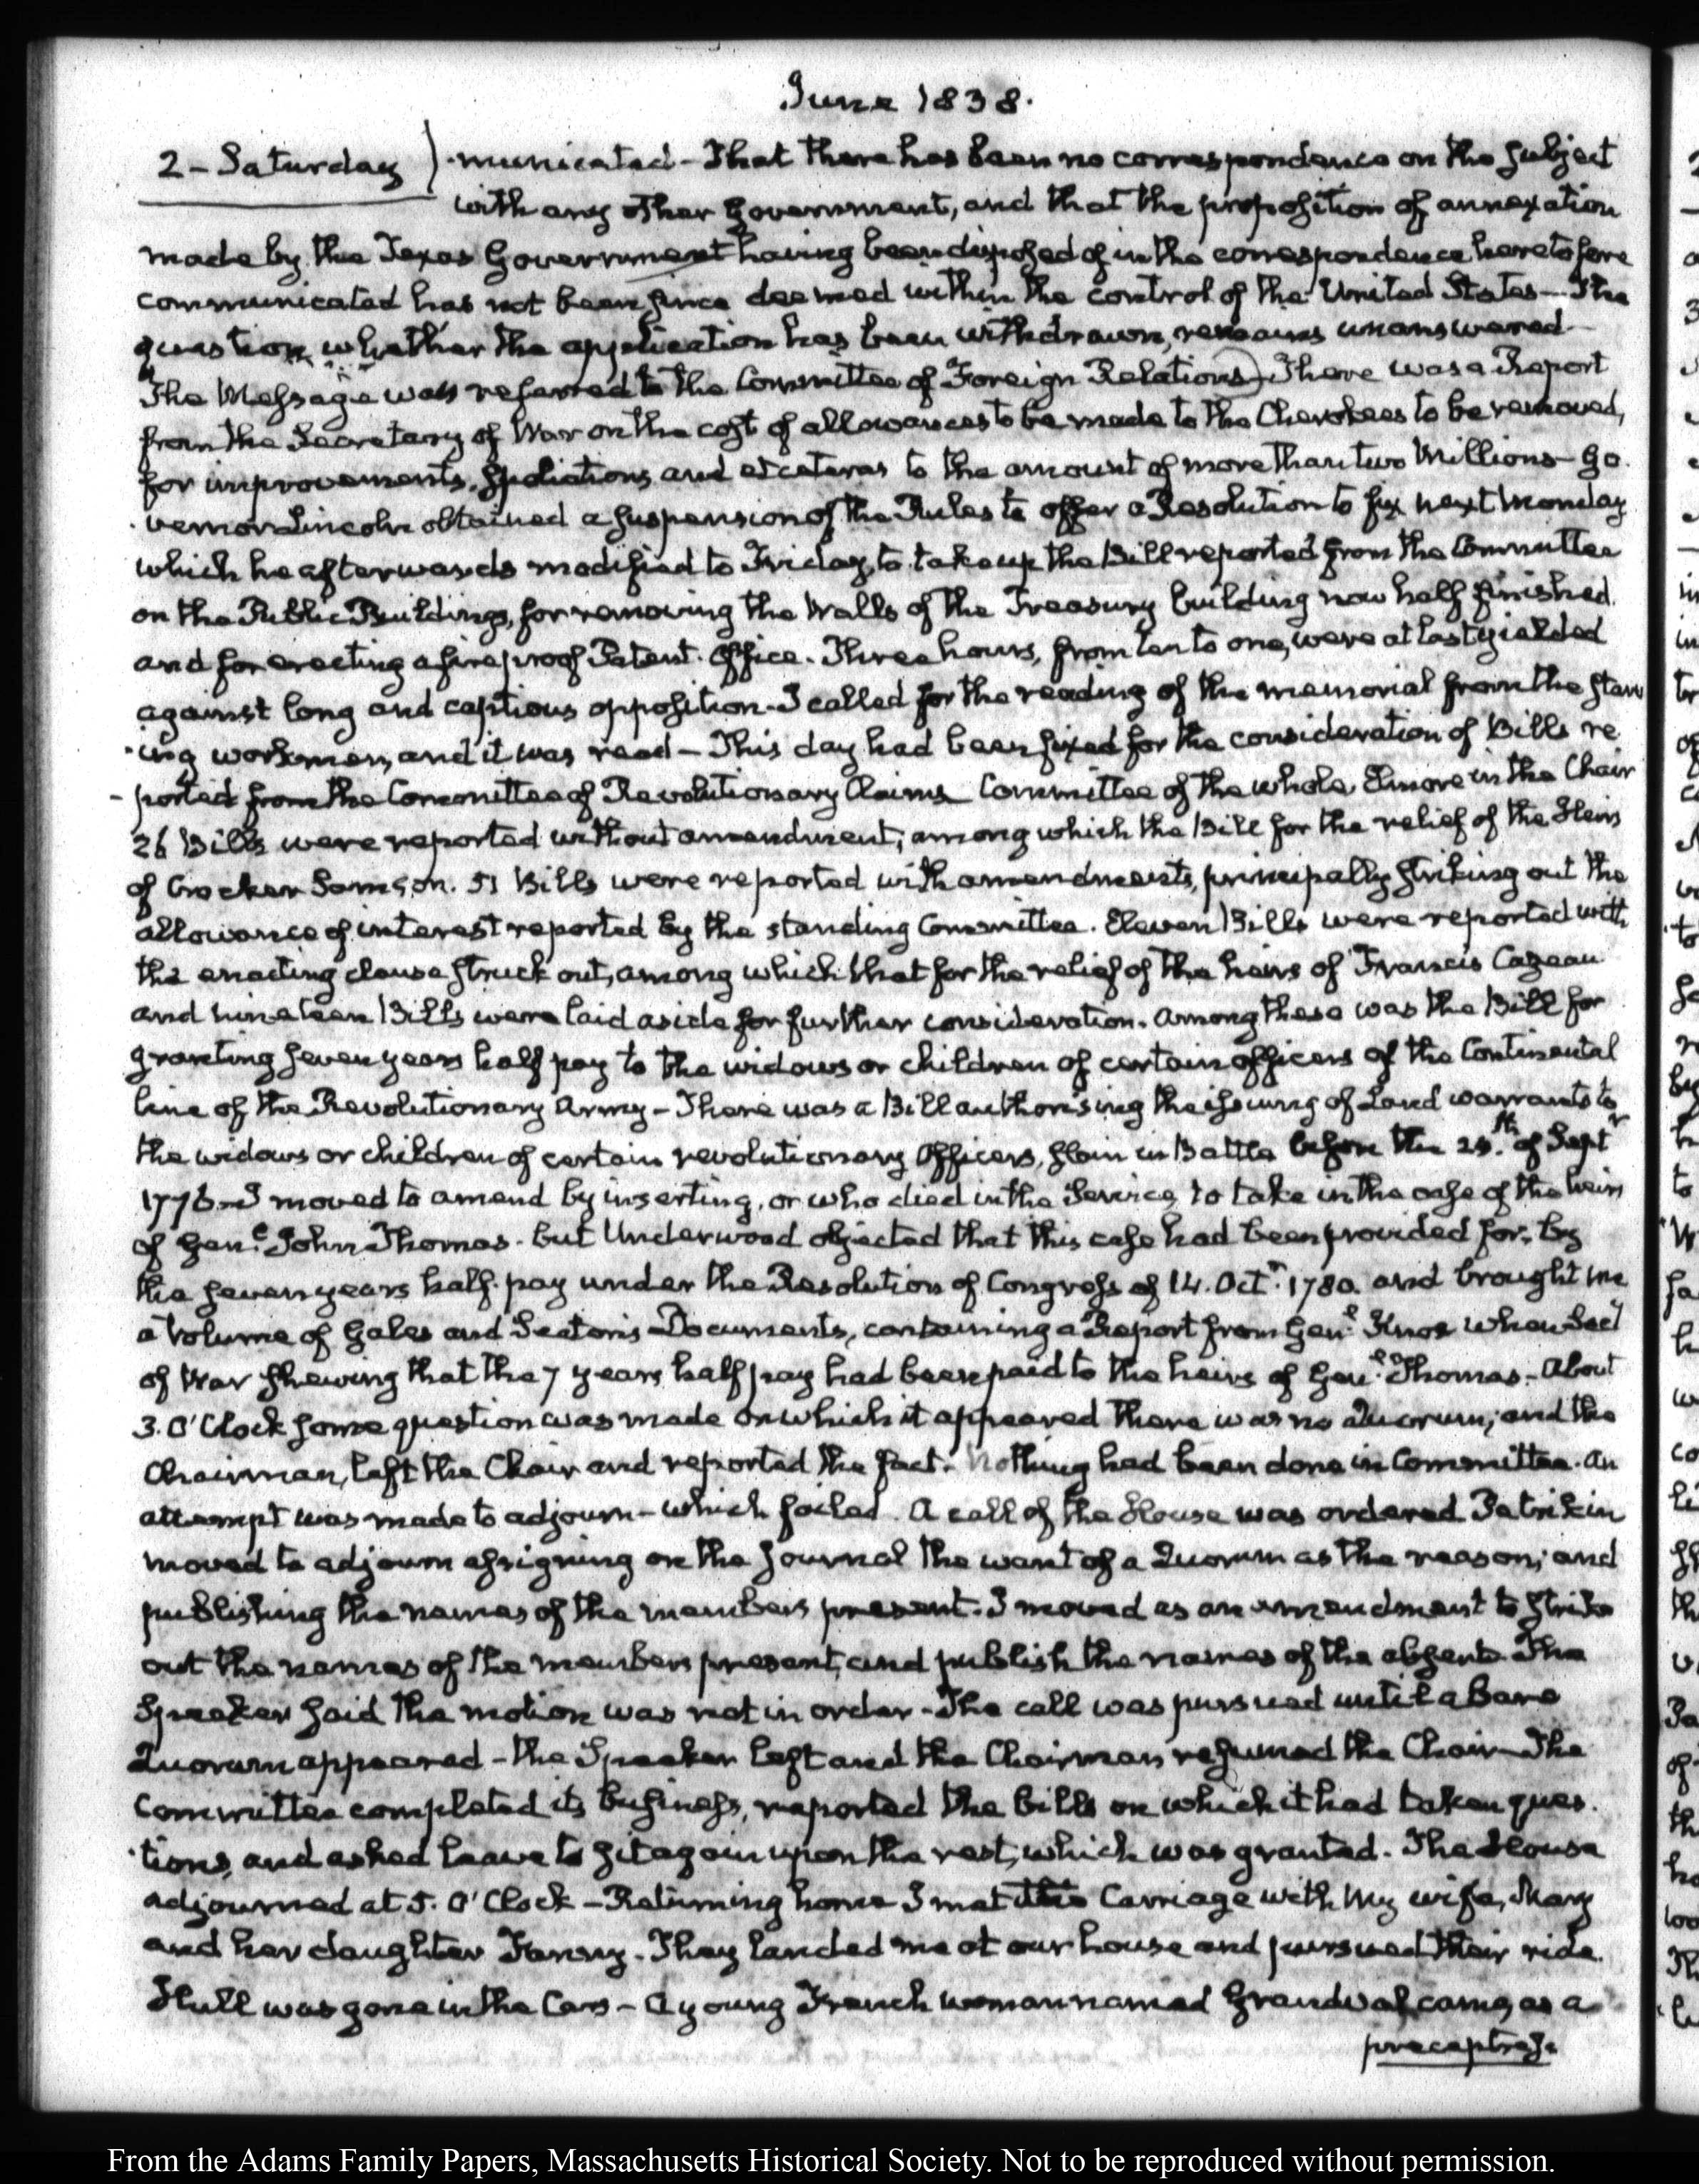 June 1838.
2 - Saturday) municated - That there has been no correspondence on the subject
with any other Government, and that the proposition of annexation
made by the Texas Government having been disposed of in the correspondence heretofore
communicated has not been since deemed within the control of the United States - The
question whether the application has been withdrawn, remains unanswered -
The Message was referred to the Committee of Foreign Relations) There was a Report
from the Secretary of War on the cost of allowances to be made to the Cherokees to be removed,
for improvements, spoliations, and etceteras to the amount of more than two Millions - Go
vernor Lincoln obtained a suspension of the Rules to offer a Resolution to fix next Monday
which he afterwards modified to Friday, to take up the Bill reported from the Committee
on the Public Buildings, for removing the Walls of the Treasury building now half finished
and for erecting a fireproof Patent Office. Three hours, from ten to one, were at last yielded
against long and captious opposition - I called for the reading of the memorial from the starv
-ing workmen, and it was read - This day had been fixed for the consideration of Bills re
-ported from the Committee of Revolutionary Claims Committee of the whole, Elmore in the Chair
26 Bills were reported without amendment, among which the Bill for the relief of the Heirs
of Crocker Samson. 51 Bills were reported with amendments, principally striking out the
allowance of interest reported by the standing Committee. Eleven Bills were reported with
the enacting clause struck out, among which that for the relief of the heirs of Francis Cazeau
and nineteen Bills were laid aside for further consideration. Among these was the Bill for
granting seven years half pay to the widows or children of certain officers of the Continental
line of the Revolutionary Army - There was a Bill authorising the issuing of Land warrants to
the widows or children of certain revolutionary Officers, slain in Battle before the of Septr
1776 - I moved to amend by inserting, or who died in the Service, to take in the case of the heirs
of Genl. John Thomas - but Underwood objected that this case had been provided for, by
the seven years half-pay under the Resolution of Congress of 14. Octr. 1780. and brought me
a Volume of Gales and Seaton's Documents, containing a Report from Genl. Knox when Secy
of War shewing that the 7 years half pay had been paid to the heirs of Genl. Thomas - About
3. O'Clock some question was made on which it appeared there was no Quorum; and the
Chairman, left the Chair and reported the fact. Nothing had been done in Committee. An
attempt was made to adjourn - which failed. A call of the House was ordered Petrikin
moved to adjourn assigning on the Journal the want of a Quorum as the reason; and
publishing the names of the members present. I moved as an amendment to strike
out the names of the members present, and publish the names of the absent. The
Speaker said the motion was not in order - The call was pursued until a bare
Quorum appeared - the Speaker left and the Chairman resumed the Chair - The
Committee completed its business, reported the bills on which it had taken ques
-tions, and asked leave to sit again upon the rest, which was granted. The House
adjourned at 5. O'Clock - Returning home I met the Carriage with my wife, Mary
and her daughter Fanny - They landed me at our house and pursued their ride.
Hull was gone in the Cars - A young French woman named Grandval came, as a
preceptress.
From the Adams Family Papers, Massachusetts Historical Society. Not to be reproduced without permission.